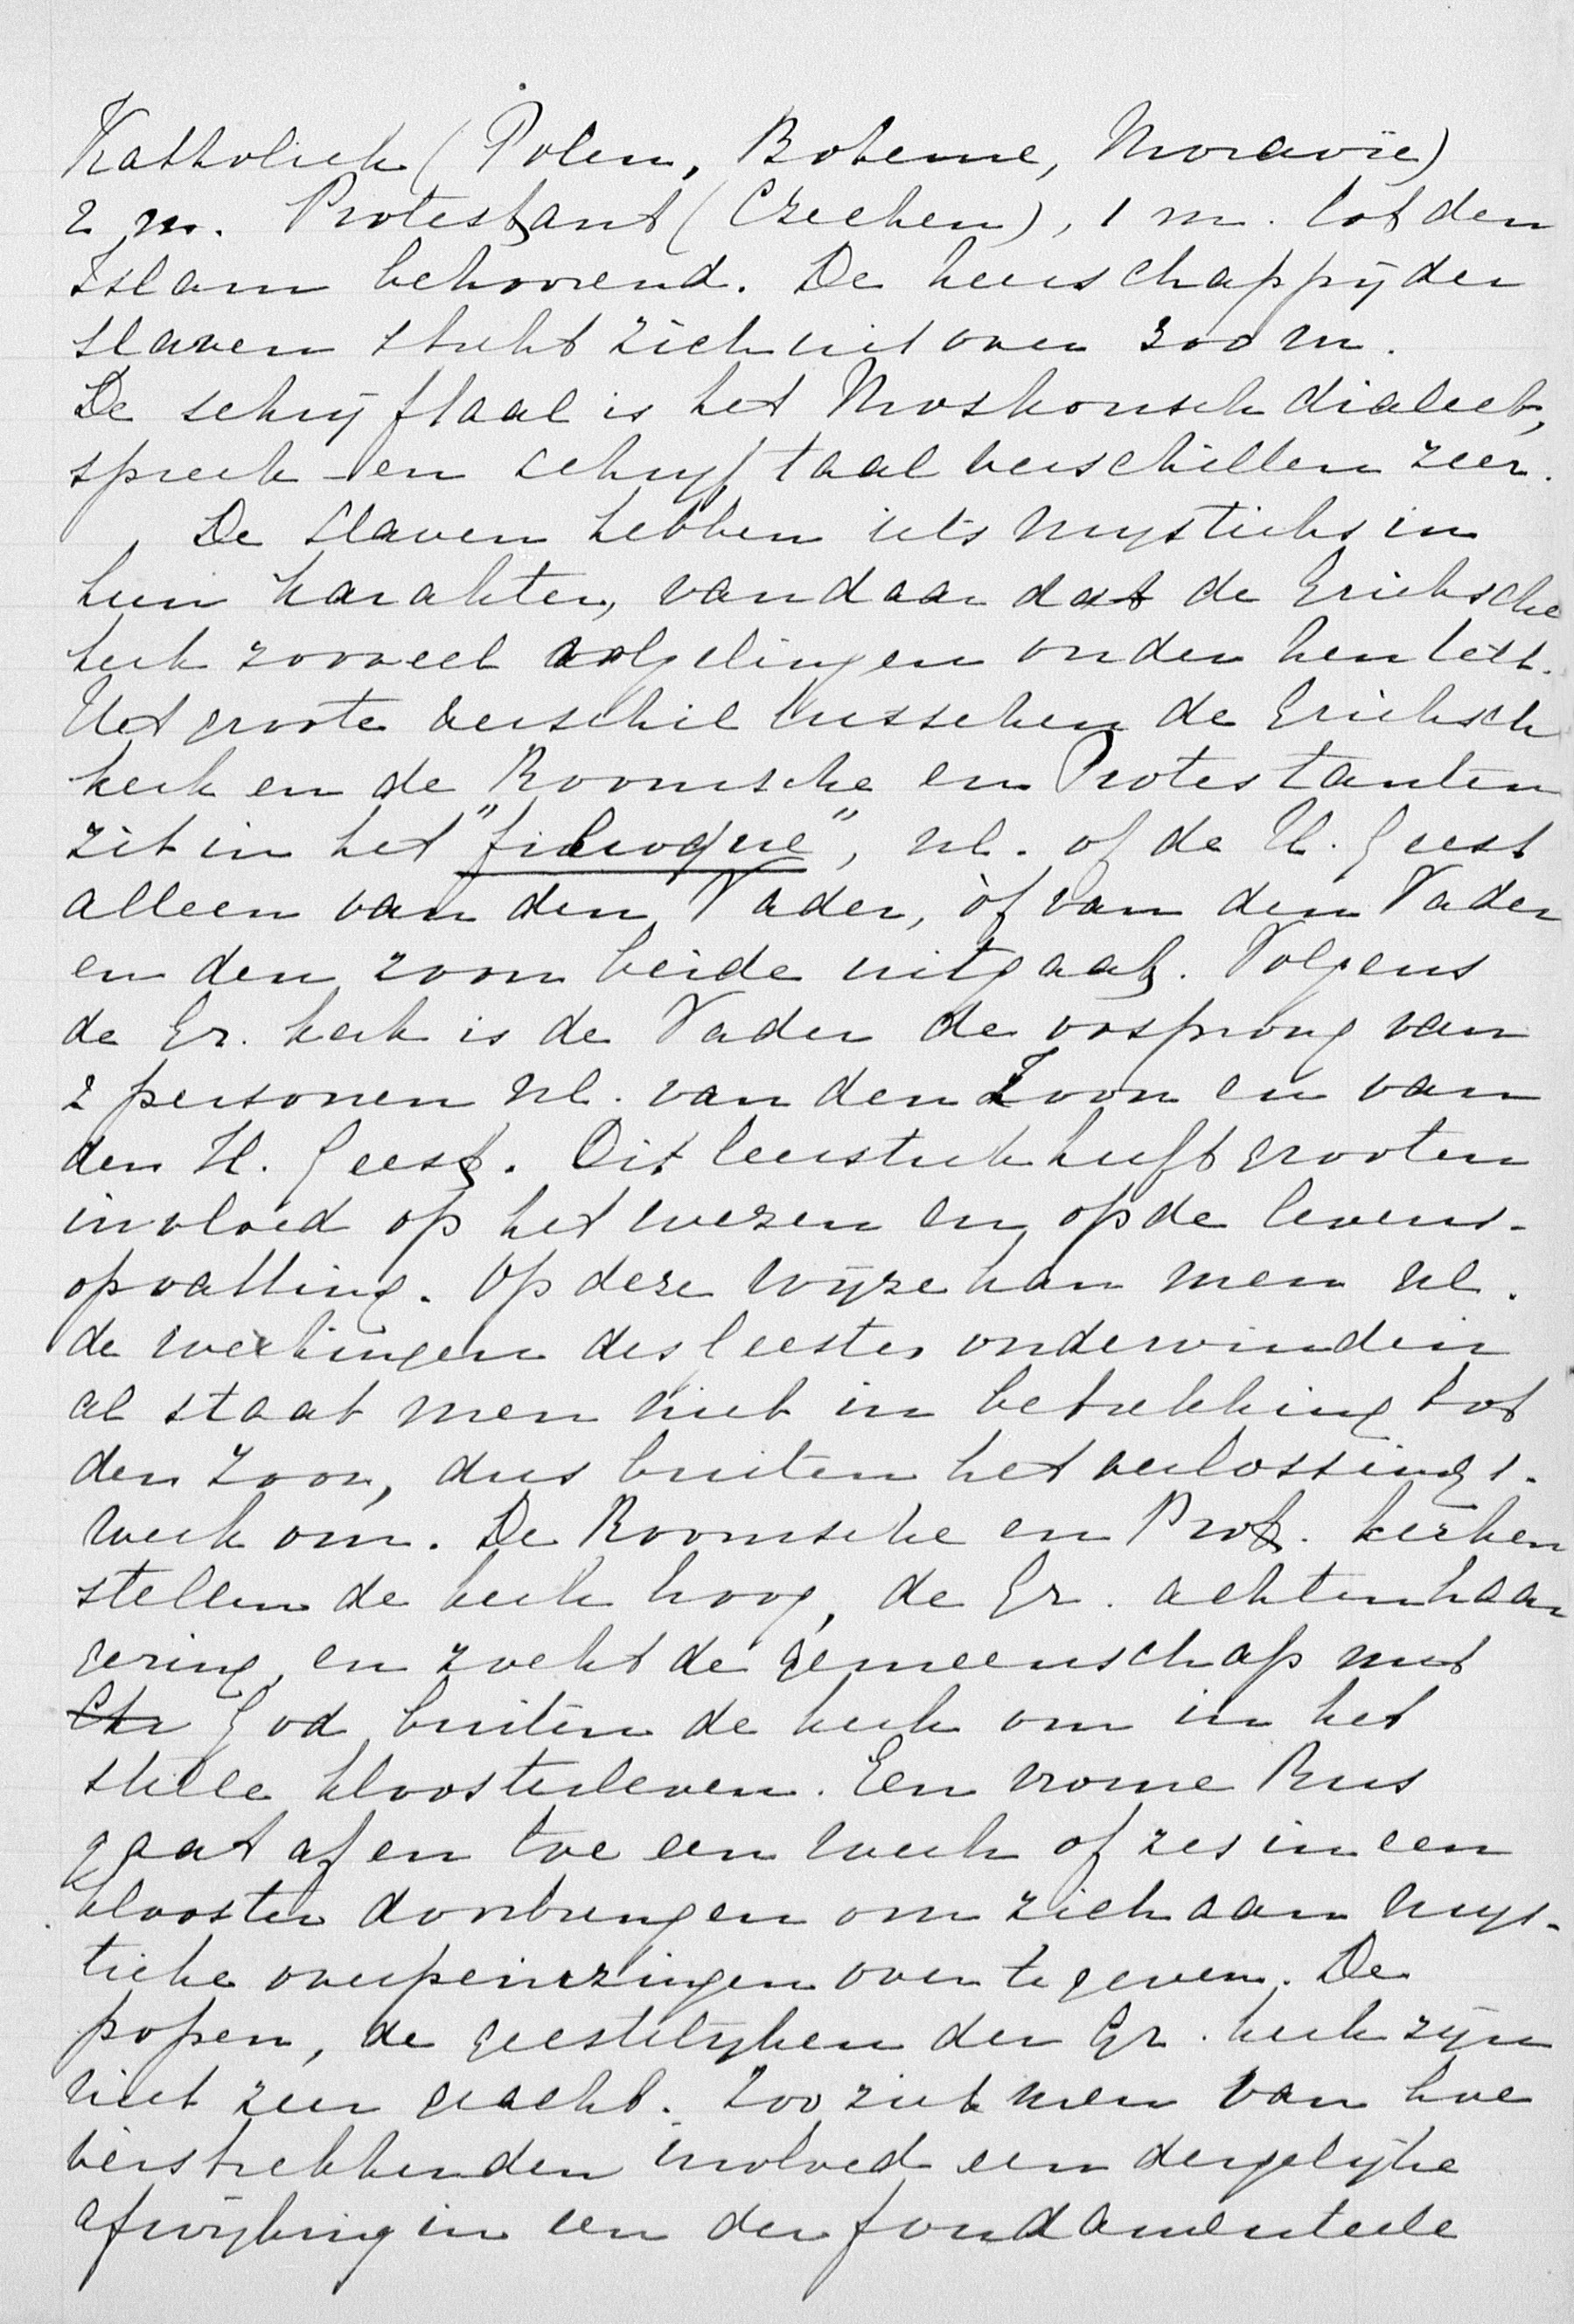 Katholiek (Polen, Boheme, Moravïe)
2 m. Protestant (Czechen), 1 m. tot den
Islam behoorend. De heerschappij der
slaven strekt zich uit over 300 m.
De schrijftaal is het Moskousch dialect,
spreek- en schrijftaal verschillen zeer.
De Slaven hebben iets mystieks in
hun karakter, vandaar dat de Grieksche
kerk zooveel volgelingen onder hen telt.
Het groote verschil tusschen de Grieksch
kerk en de Roomsche en Protestanten
zit in het "filioque", nl. of de H. Geest
alleen van den Vader, òf van den Vader
en den zoon beide uitgaat. Volgens
de Gr. kerk is de Vader de oosprong van
2 personen nl. van den Zoon en van
den H. Geest. Dit leerstuk heeft grooten
invloed op het wezen en op de levens-
opvatting. Op deze wijze kan men nl.
de werkingen des Geestes ondervinden
al staat men niet in betrekking tot
den Zoon, dus buiten het verlossings-
werk om. De Roomsche en Prot. kerken
stellen de kerk hoog, de Gr. achten haar
gering, en zoekt de gemeenschap met
Chr God buiten de kerk om in het
stille kloosterleven. Een vrome Rus
gaat af en toe een week of zes in een
klooster doorbrengen om zich aan mys-
tieke overpeinzingen over te geven. De
popen, de geestelijken der Gr. kerk zijn
niet zeer geacht. Zoo ziet men van hoe
verstrekkenden invloed een dergelijke
afwijking in een der fondamenteele